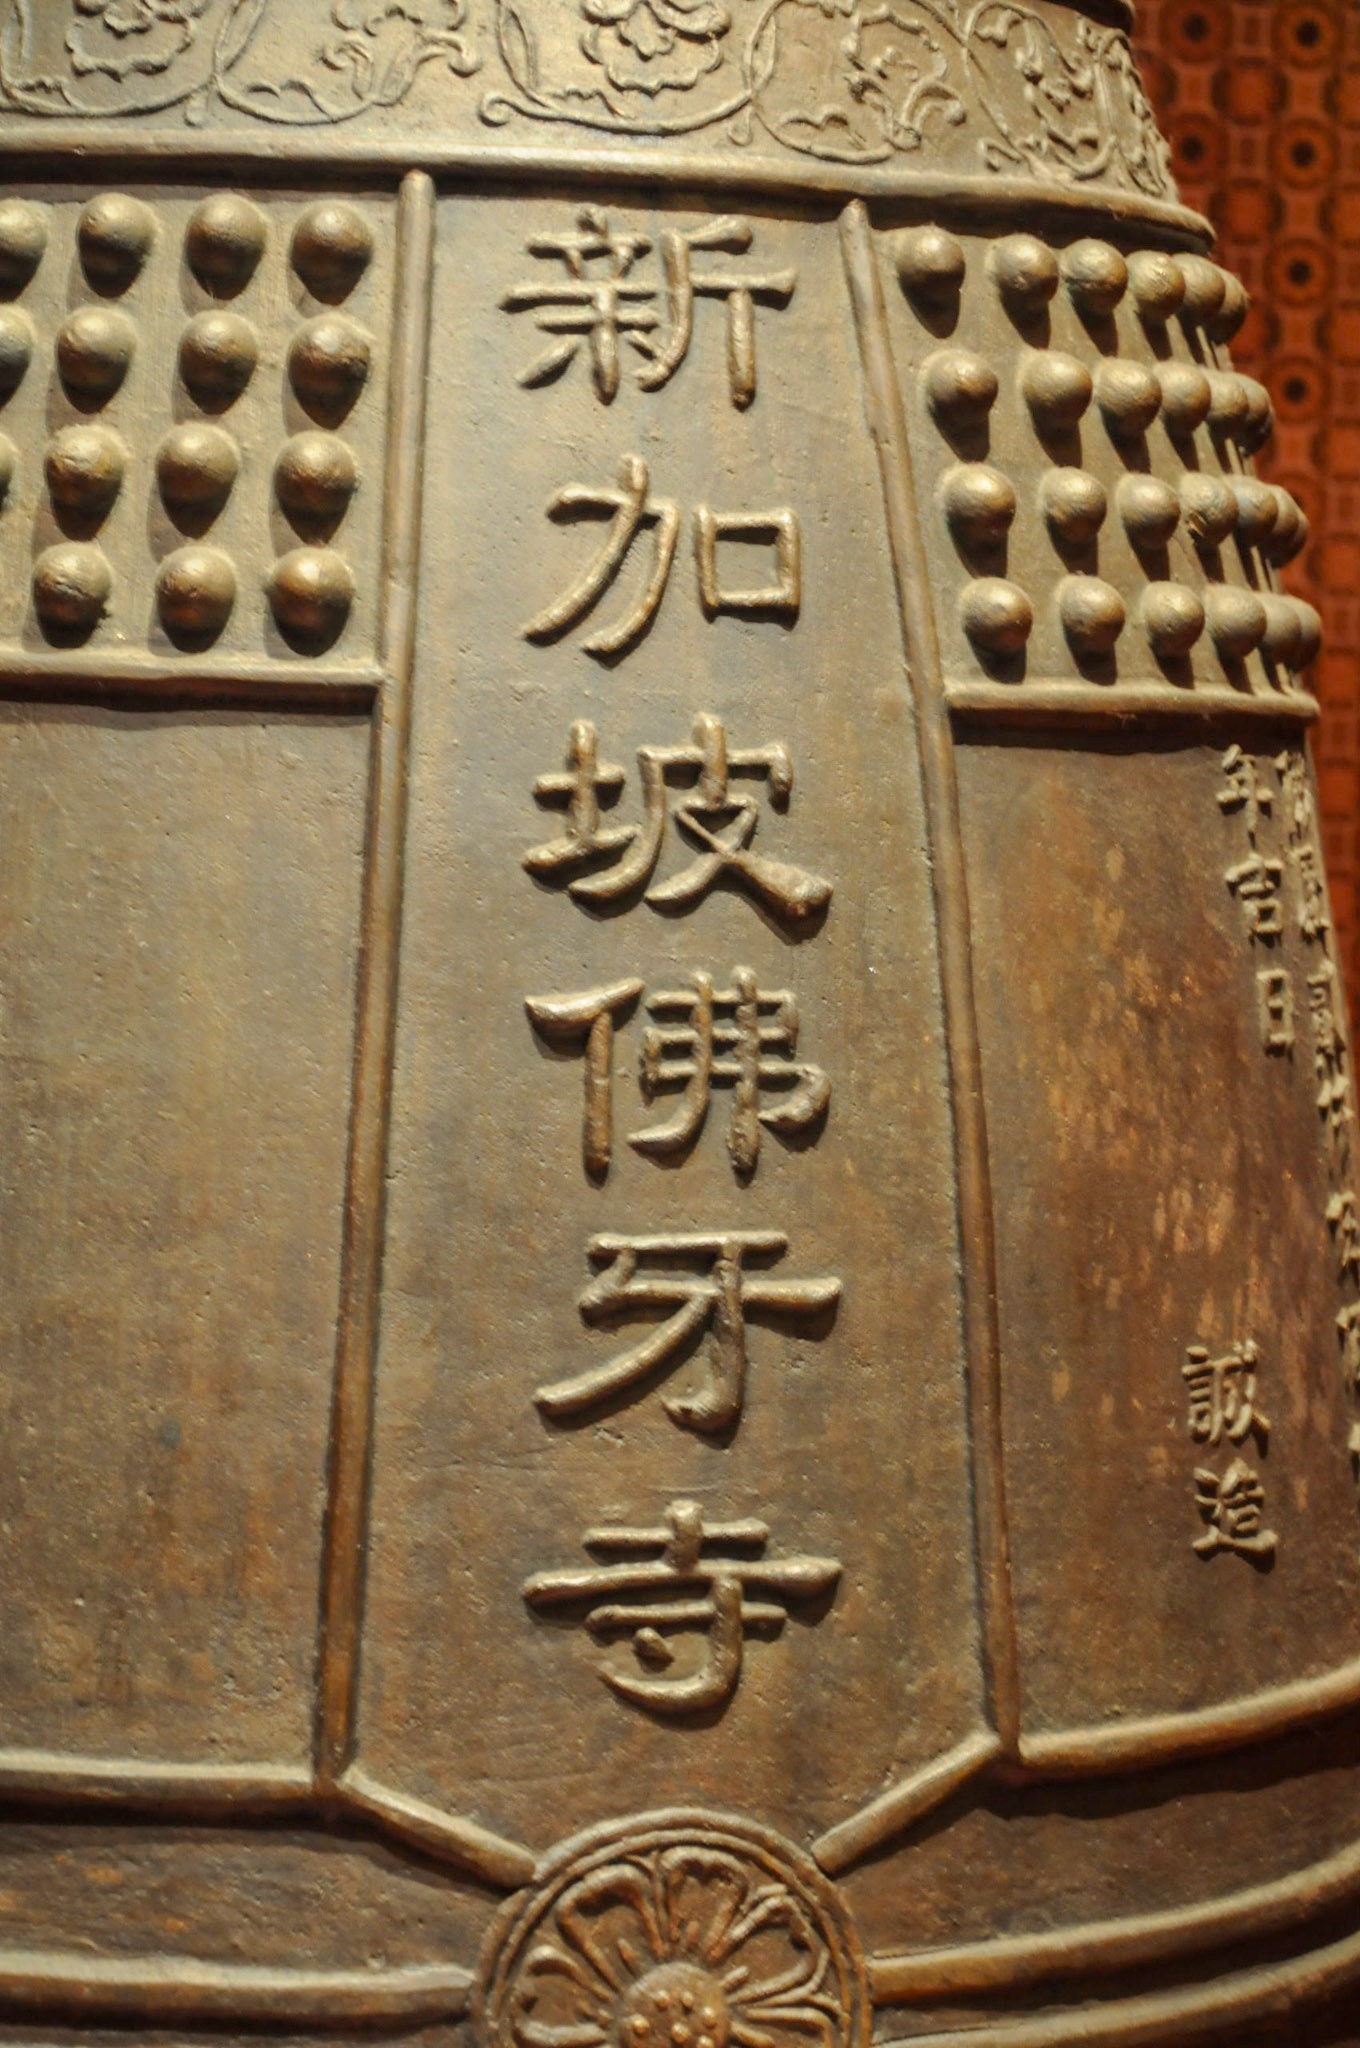 新加坡佛牙寺
年吉日
誠造